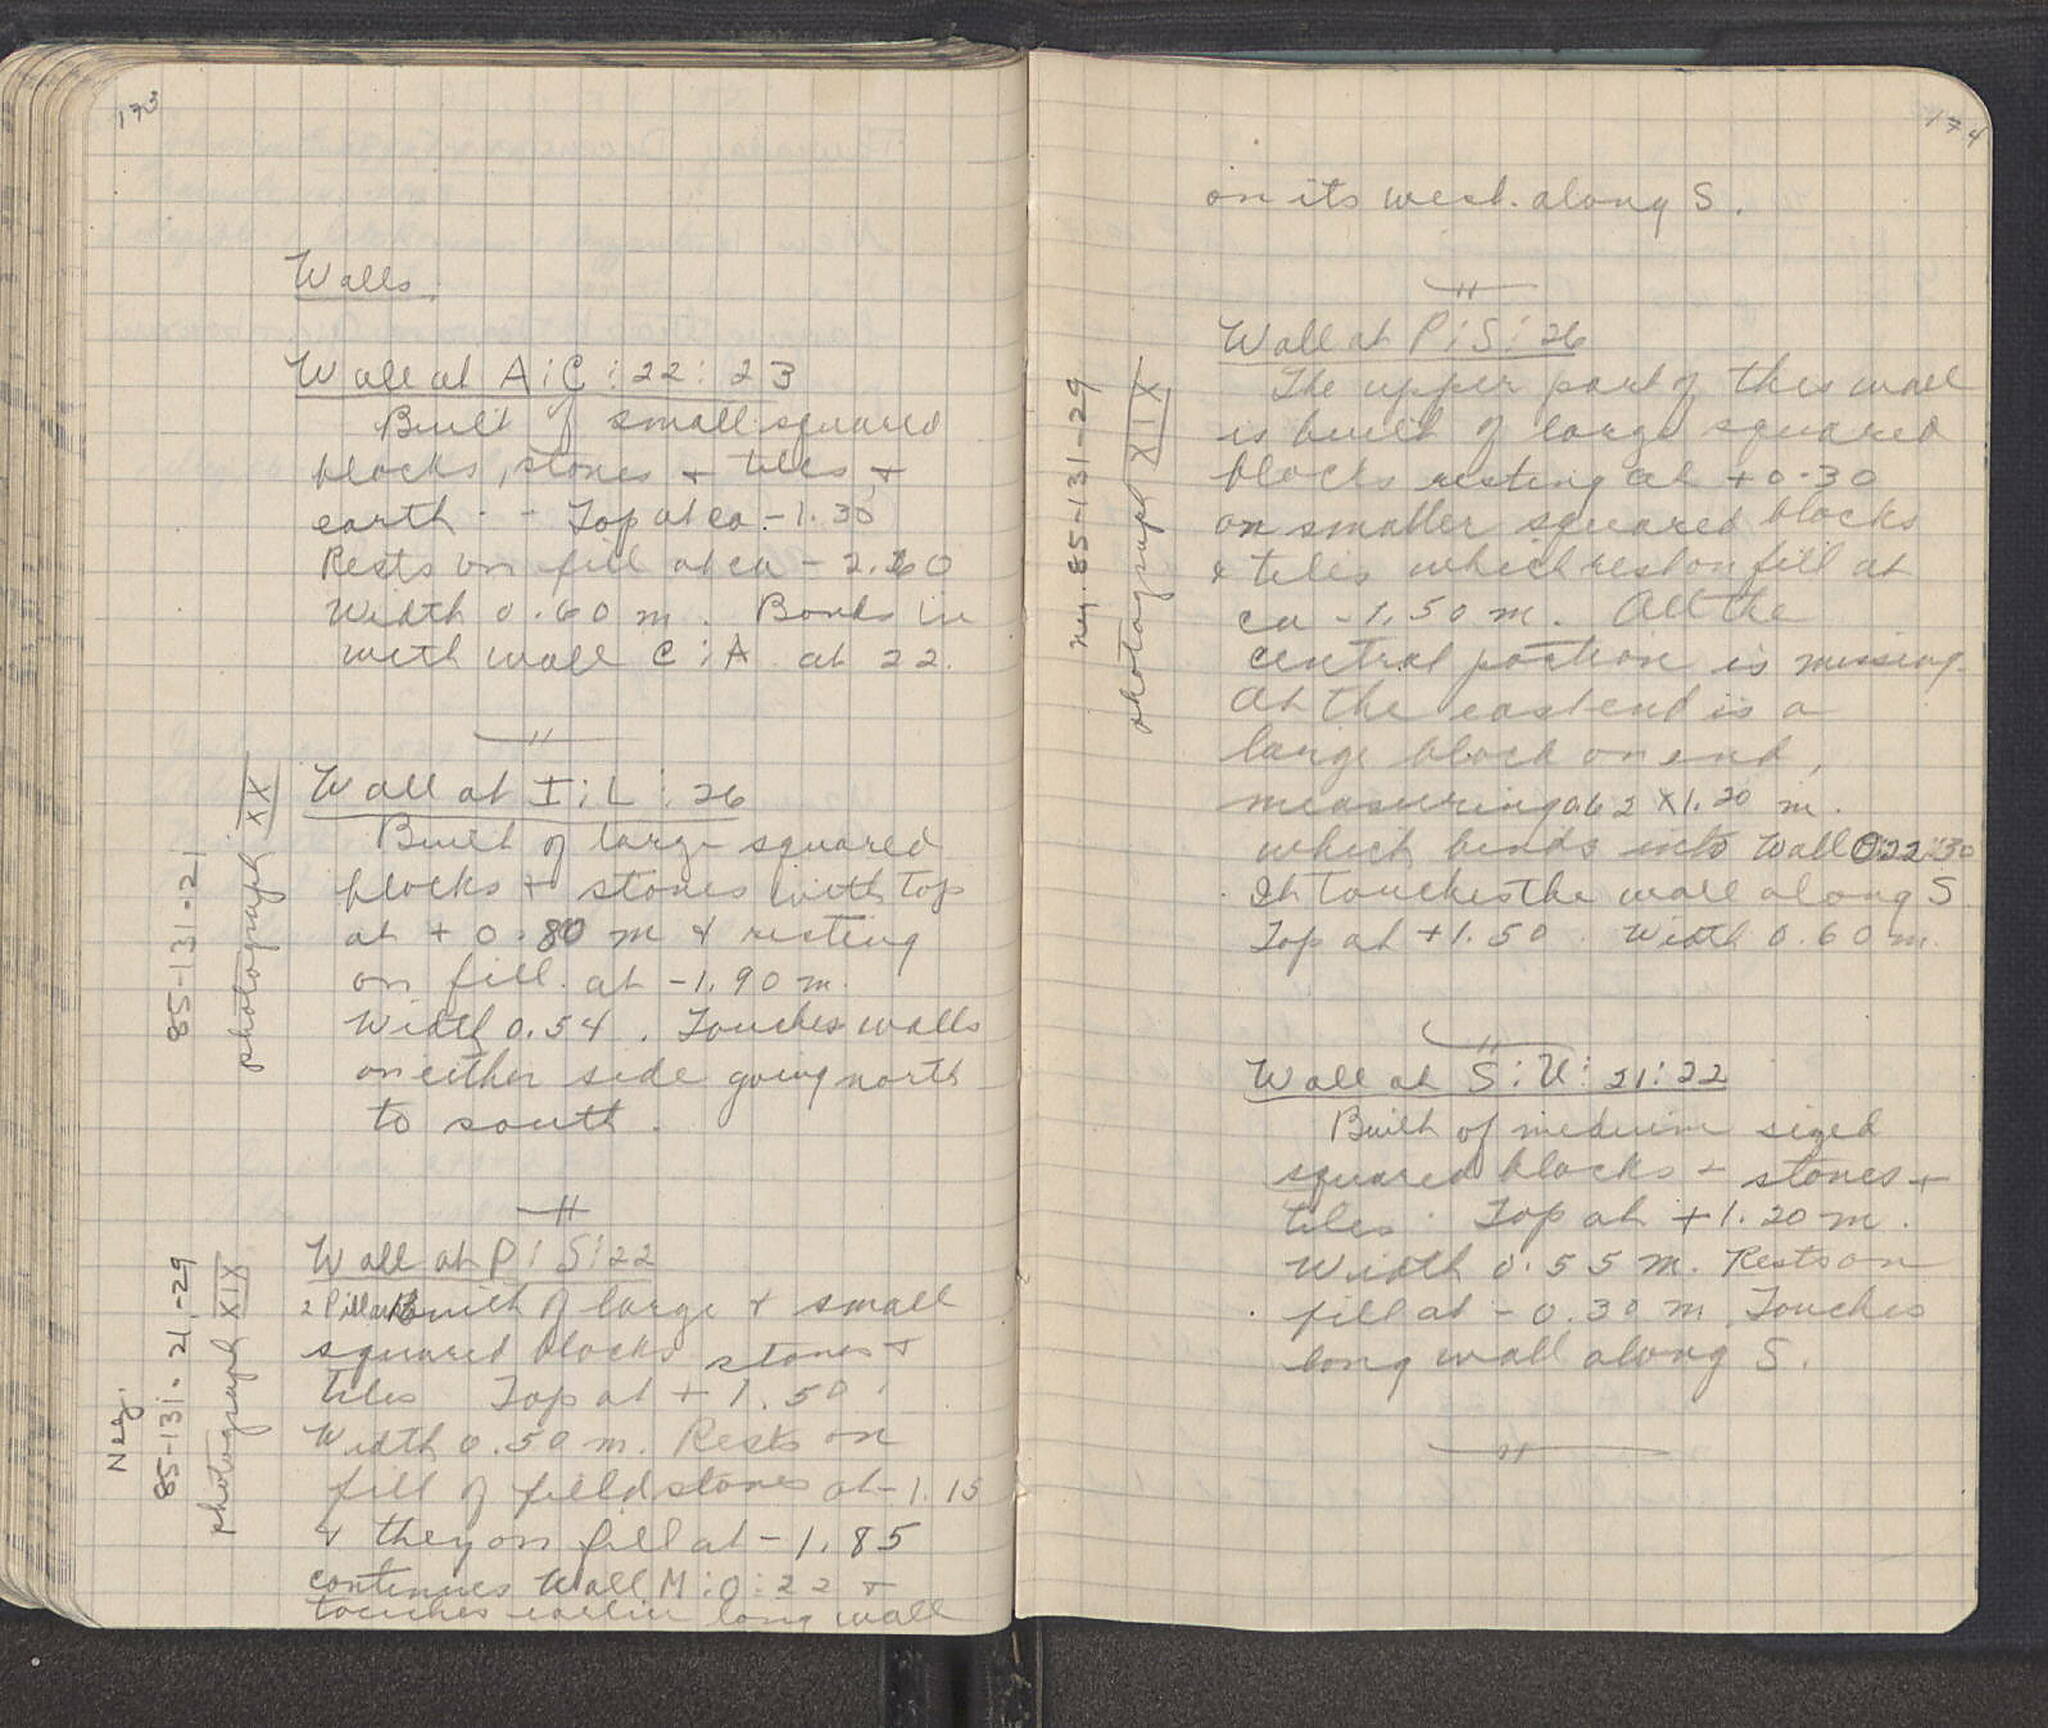 173
Walls.
Wall at A:C:22:23
Built of small squared
blocks, stones + tiles, +
earth - - Top at ca. -1.30
Rests on fill at ca - 2.20
Width 0.60 m. Bonds in
with wall C:A at 22.
"
85-131-21
photograph XX
Wall at I:L:26
Built of large squared
blocks + stones with top
at + 0.80 m & resting
on fill at -1.90 m.
Width 0.54. Touches walls
on either side going north
to south.
"
Neg.
85-131-21,-29
photograph XIX
Wall at P:S:22
2 Pillars Built of large & small
squared blocks stones +
tiles Top at + 1.50.
Width 0.50 m. Rests on
fill of fieldstones at -1.15
& they on fill at -1.85
continues Wall M:O:22 +
touches earlier long wall
174
on its west. along S.
"
neg. 85-131-29
photograph XIX
Wall at P:S:26
The upper part of this wall
is built of large squared
blocks resting at +0.30
on smaller squared blocks
& tiles which rest on fill at
ca -1.50 m. All the
central portion is missing.
At the east end is a
large block on end,
measuring 0.62 X 1.20 m.
which binds into Wall O:22:30
It touches the wall along S
Top at +1.50. Width 0.60 m.
"
Wall at S:U:21:22
Built of medium sized
squared blocks + stones +
tiles. Top at +1.20 m.
Width 0.55 m. Rests on
fill at - 0.30 m. Touches
long wall along S.
"